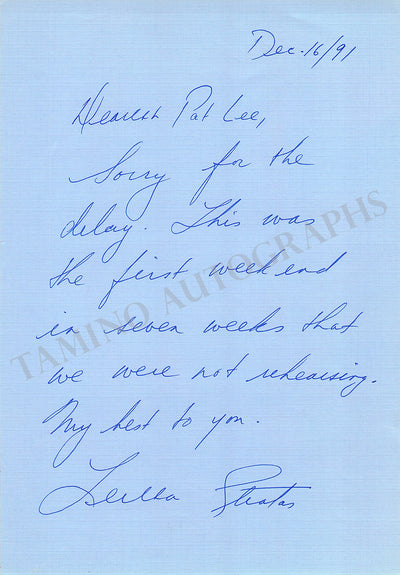 Dec. 16/91
Dearest Pat Lee,
Sorry for the
delay. This was
the first weekend
in seven weeks that
we were not rehearsing.
My best to you.
Teresa Stratas
TAMINO AUTOGRAPHS